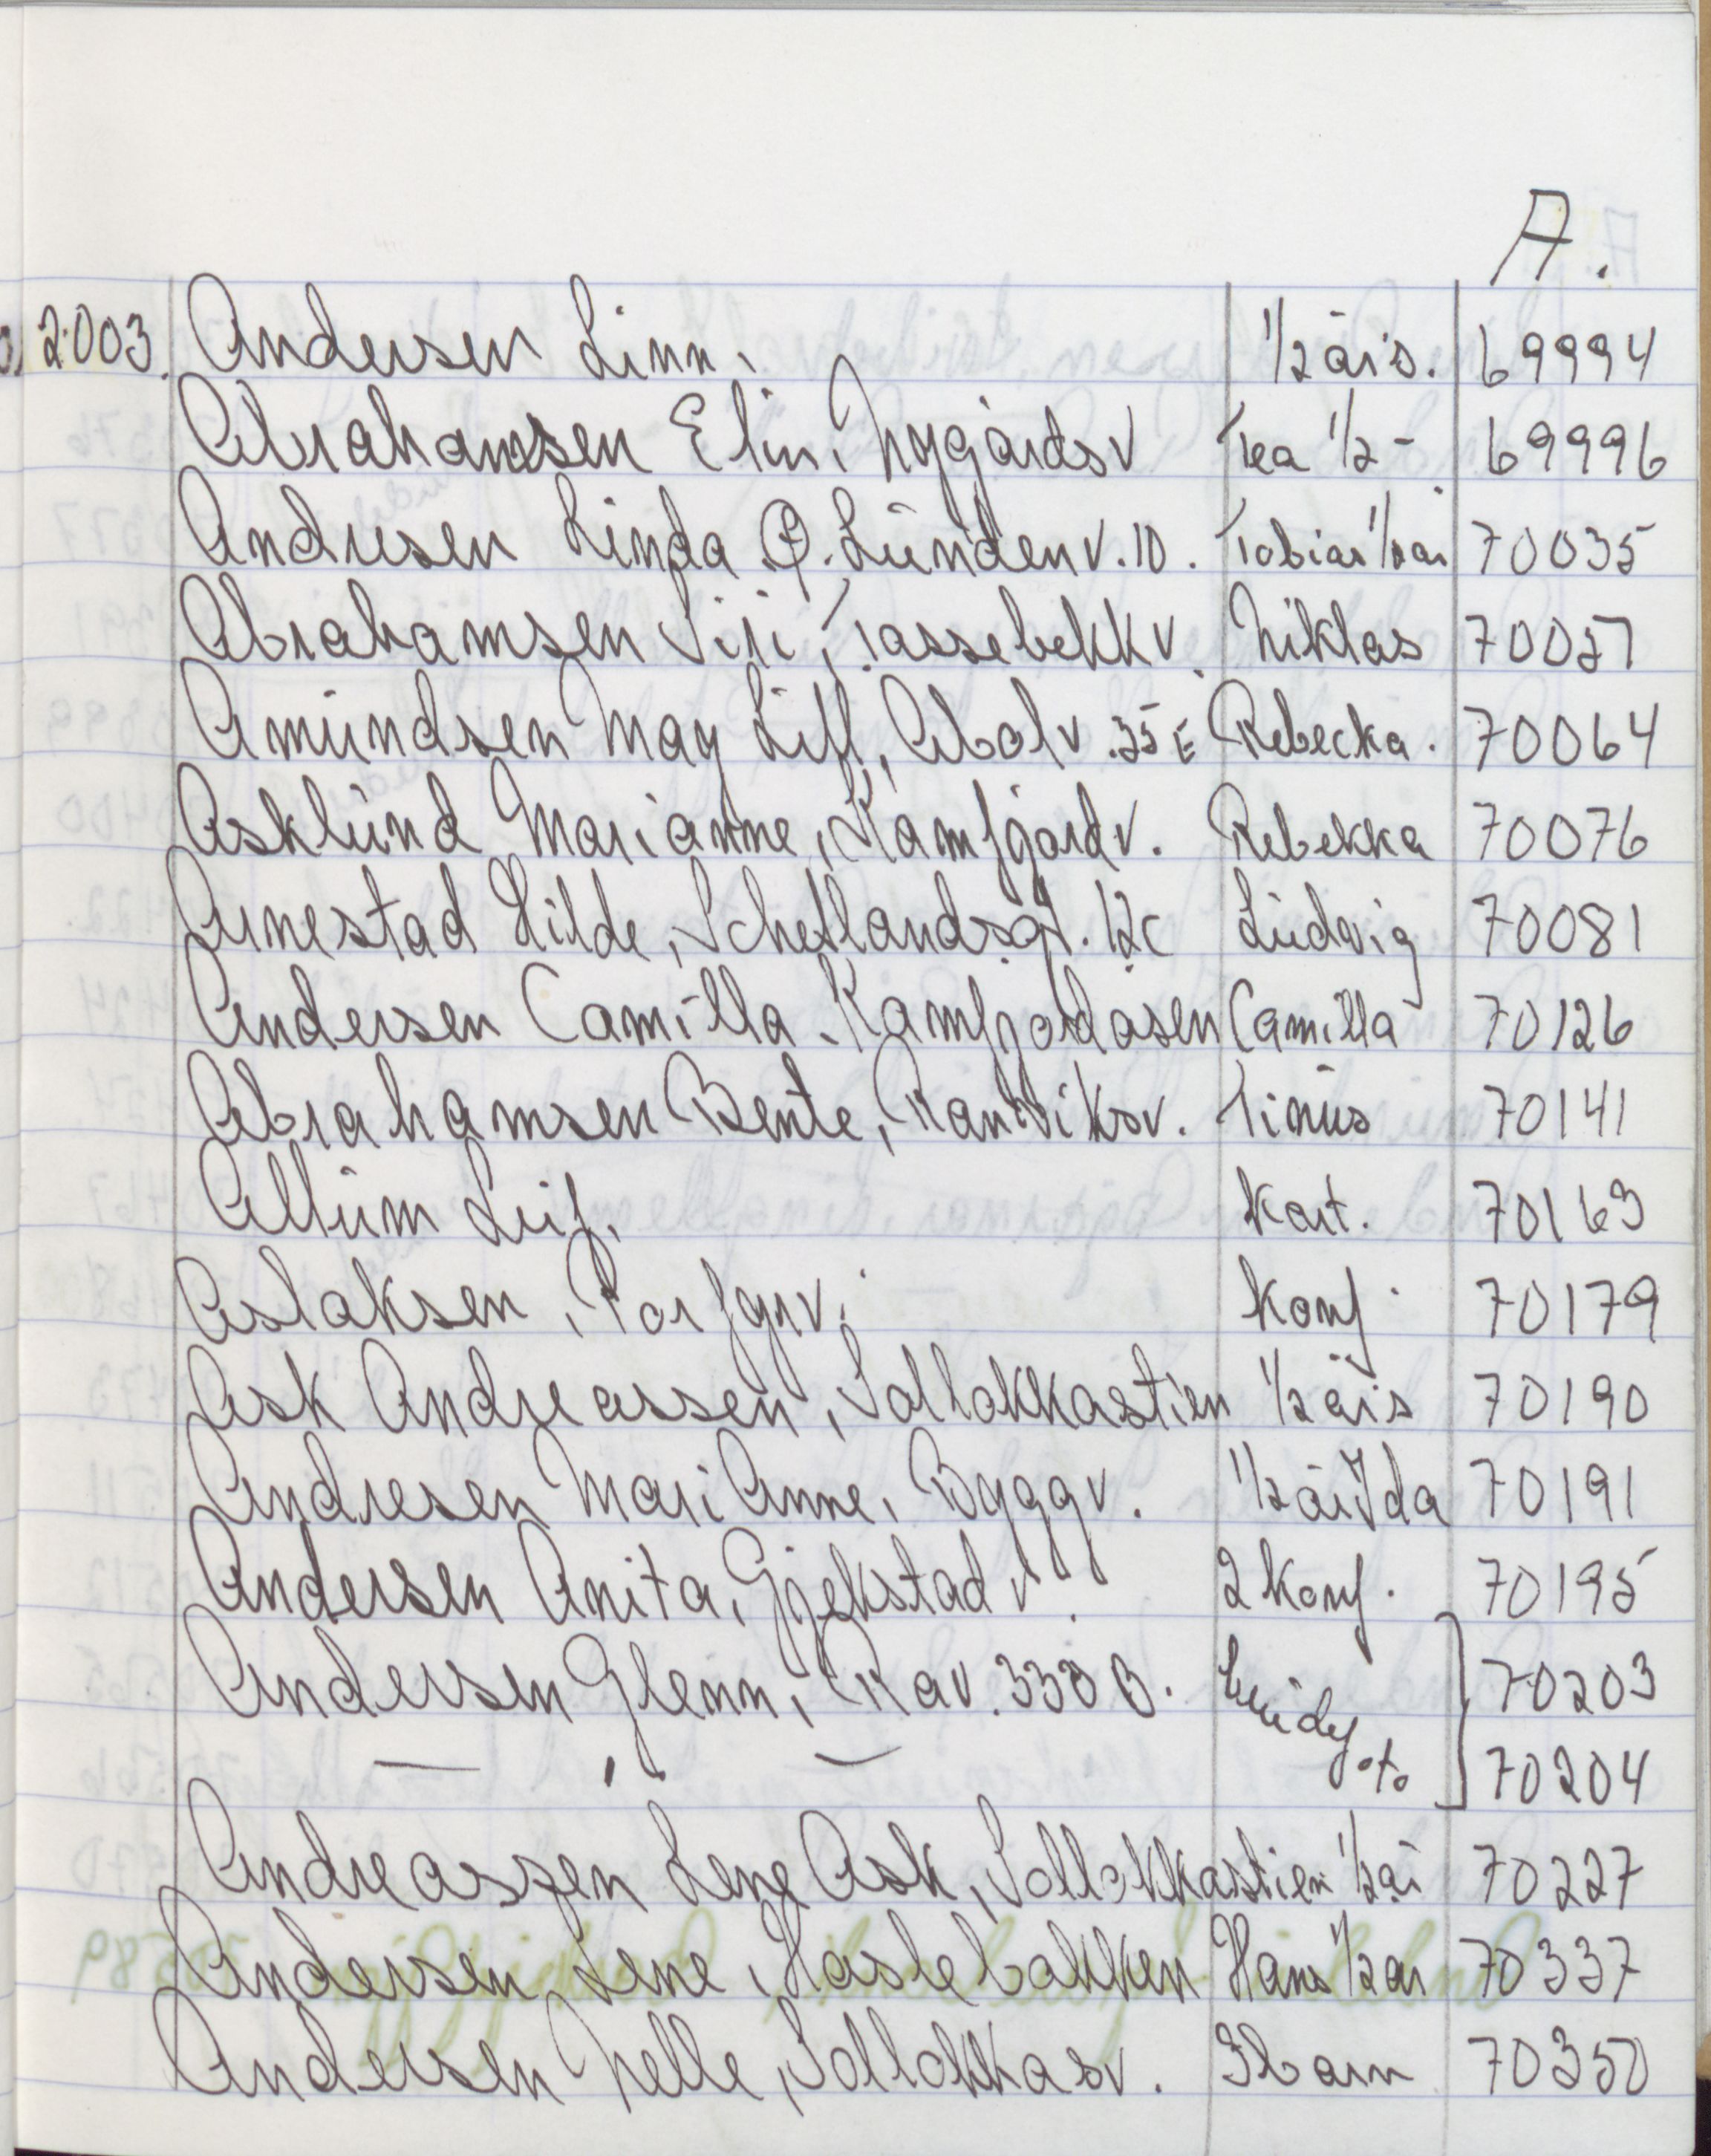 A.
2003. Andersen Linn, 1/2 års. 69994
Abrahamsen Elin, Nygårdsv Tea 1/2 - 69996
Andresen Linda Ø. Lundenv. 10. Tobias 1/2 år 70035
Abrahamsen Siri, Tassebekkv. Niklas 70057
Amundsen May Lill, Abolv. 35 E Rebecka. 70064
Asklund Marianne, Kamfjordv. Rebekka 70076
Arnestad Hilde, Schetlandsgt. 12c Ludvig 70081
Andersen Camilla, Kamfjordåsen Camilla 70126
Abrahamsen Bente, Ranviksv. Tinus 70141
Allum Leif, Kort. 70163
Aslaksen, Konf. 70179
Ask Andreassen, Solløkkastien 1/2 års 70190
Andresen Mari Anne, Byggv. 1/2 år Ida 70191
Andersen Anita, Gjekstadv. 2 Konf. 70195
Andersen Glenn, Rav. 330 B. 70203
— , , — 70204
Andreassen Lene Ask, Solløkkastien 1/2 år 70227
Andersen Lene, Haslebakken Hans 1/2 år 70337
Andersen Nelle, Solløkkasv. 3 barn 70350